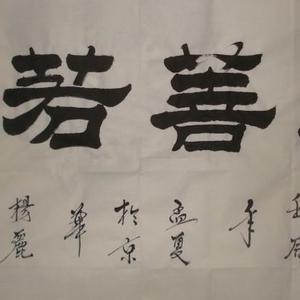 善若
壬辰
年
孟夏
於京
華
楊麗